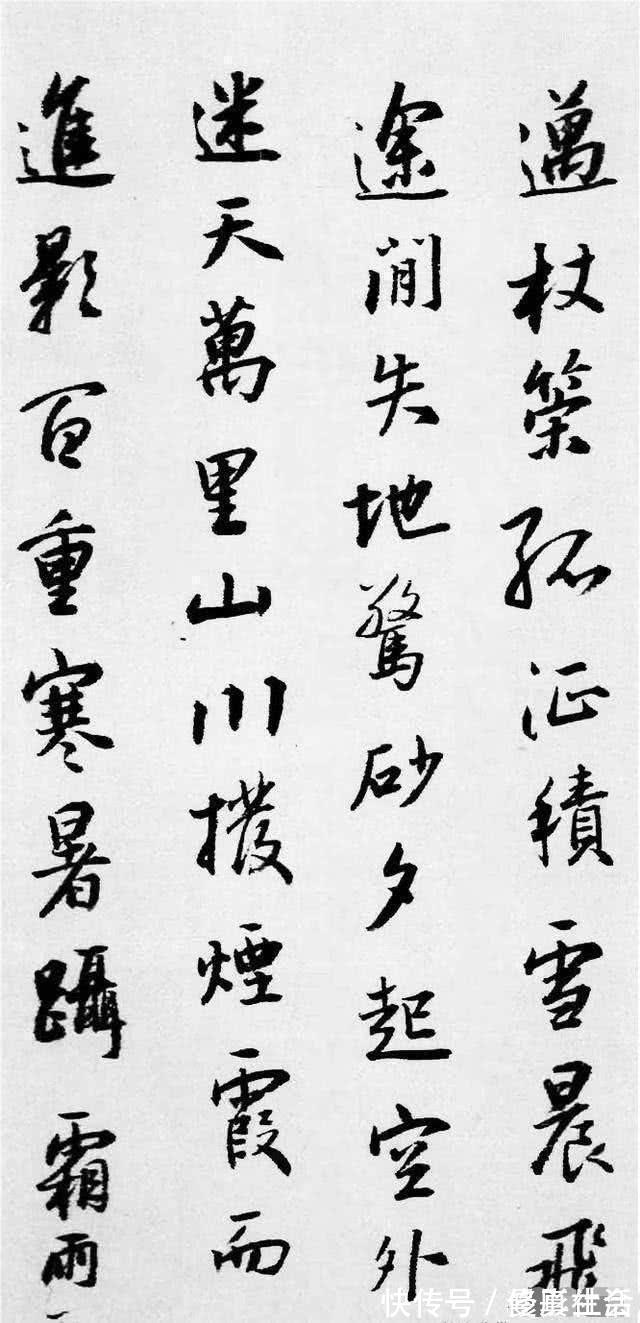 邁杖策孤征積雪晨飛
途間失地驚砂夕起空外
迷天萬里山川撥煙霞而
進影百重寒暑躡霜雨
快传号/